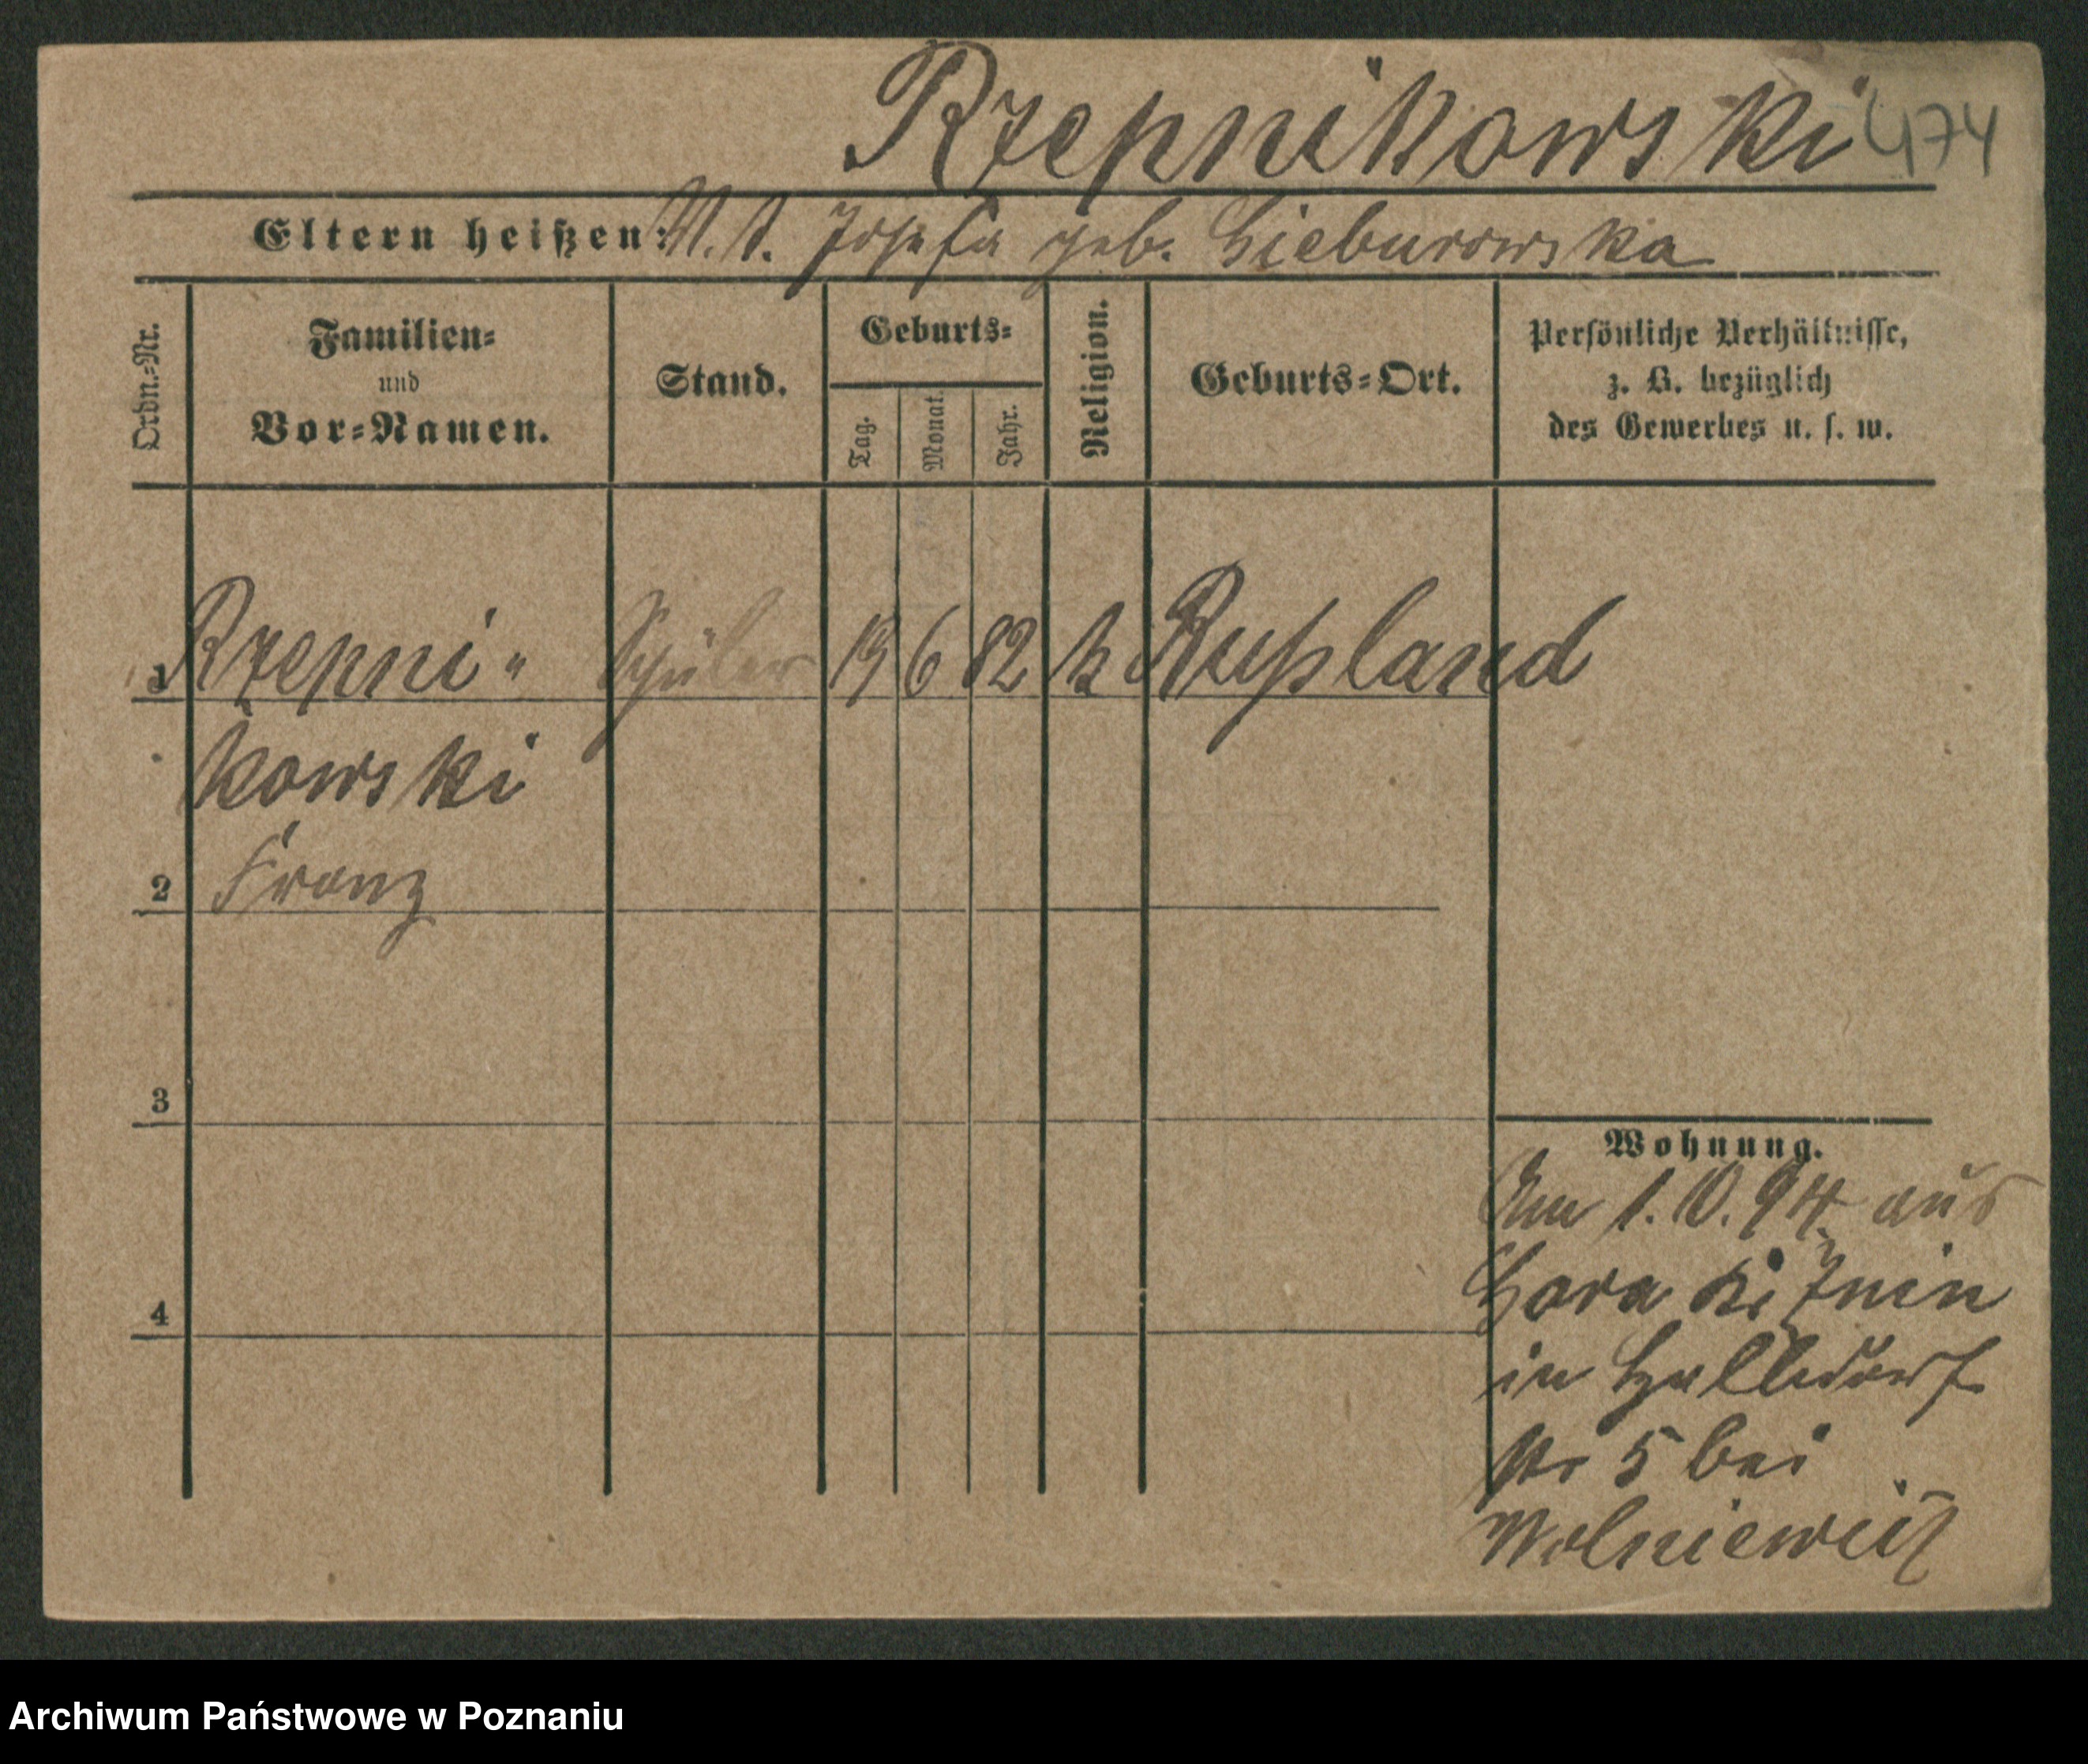 Rzepnikowski 474
Eltern heißen: M. A. Josefa geb. Cieburowska
Ordn.-Nr.
Familien-
und
Vor-Namen.
Stand.
Geburts-
Tag.
Monat.
Jahr.
Religion.
Geburts-Ort.
Persönliche Verhältnisse,
z. B. bezüglich
des Gewerbes u. s. w.
1 Rzepni- Schüler 19 6 82 k Rußland
kowski
2 Franz
3
4
Wohnung.
Am 1.10.94 aus
Gora Kr Znin
in Halbdorf
str 5 bei
Wolniewicz
Archiwum Państwowe w Poznaniu